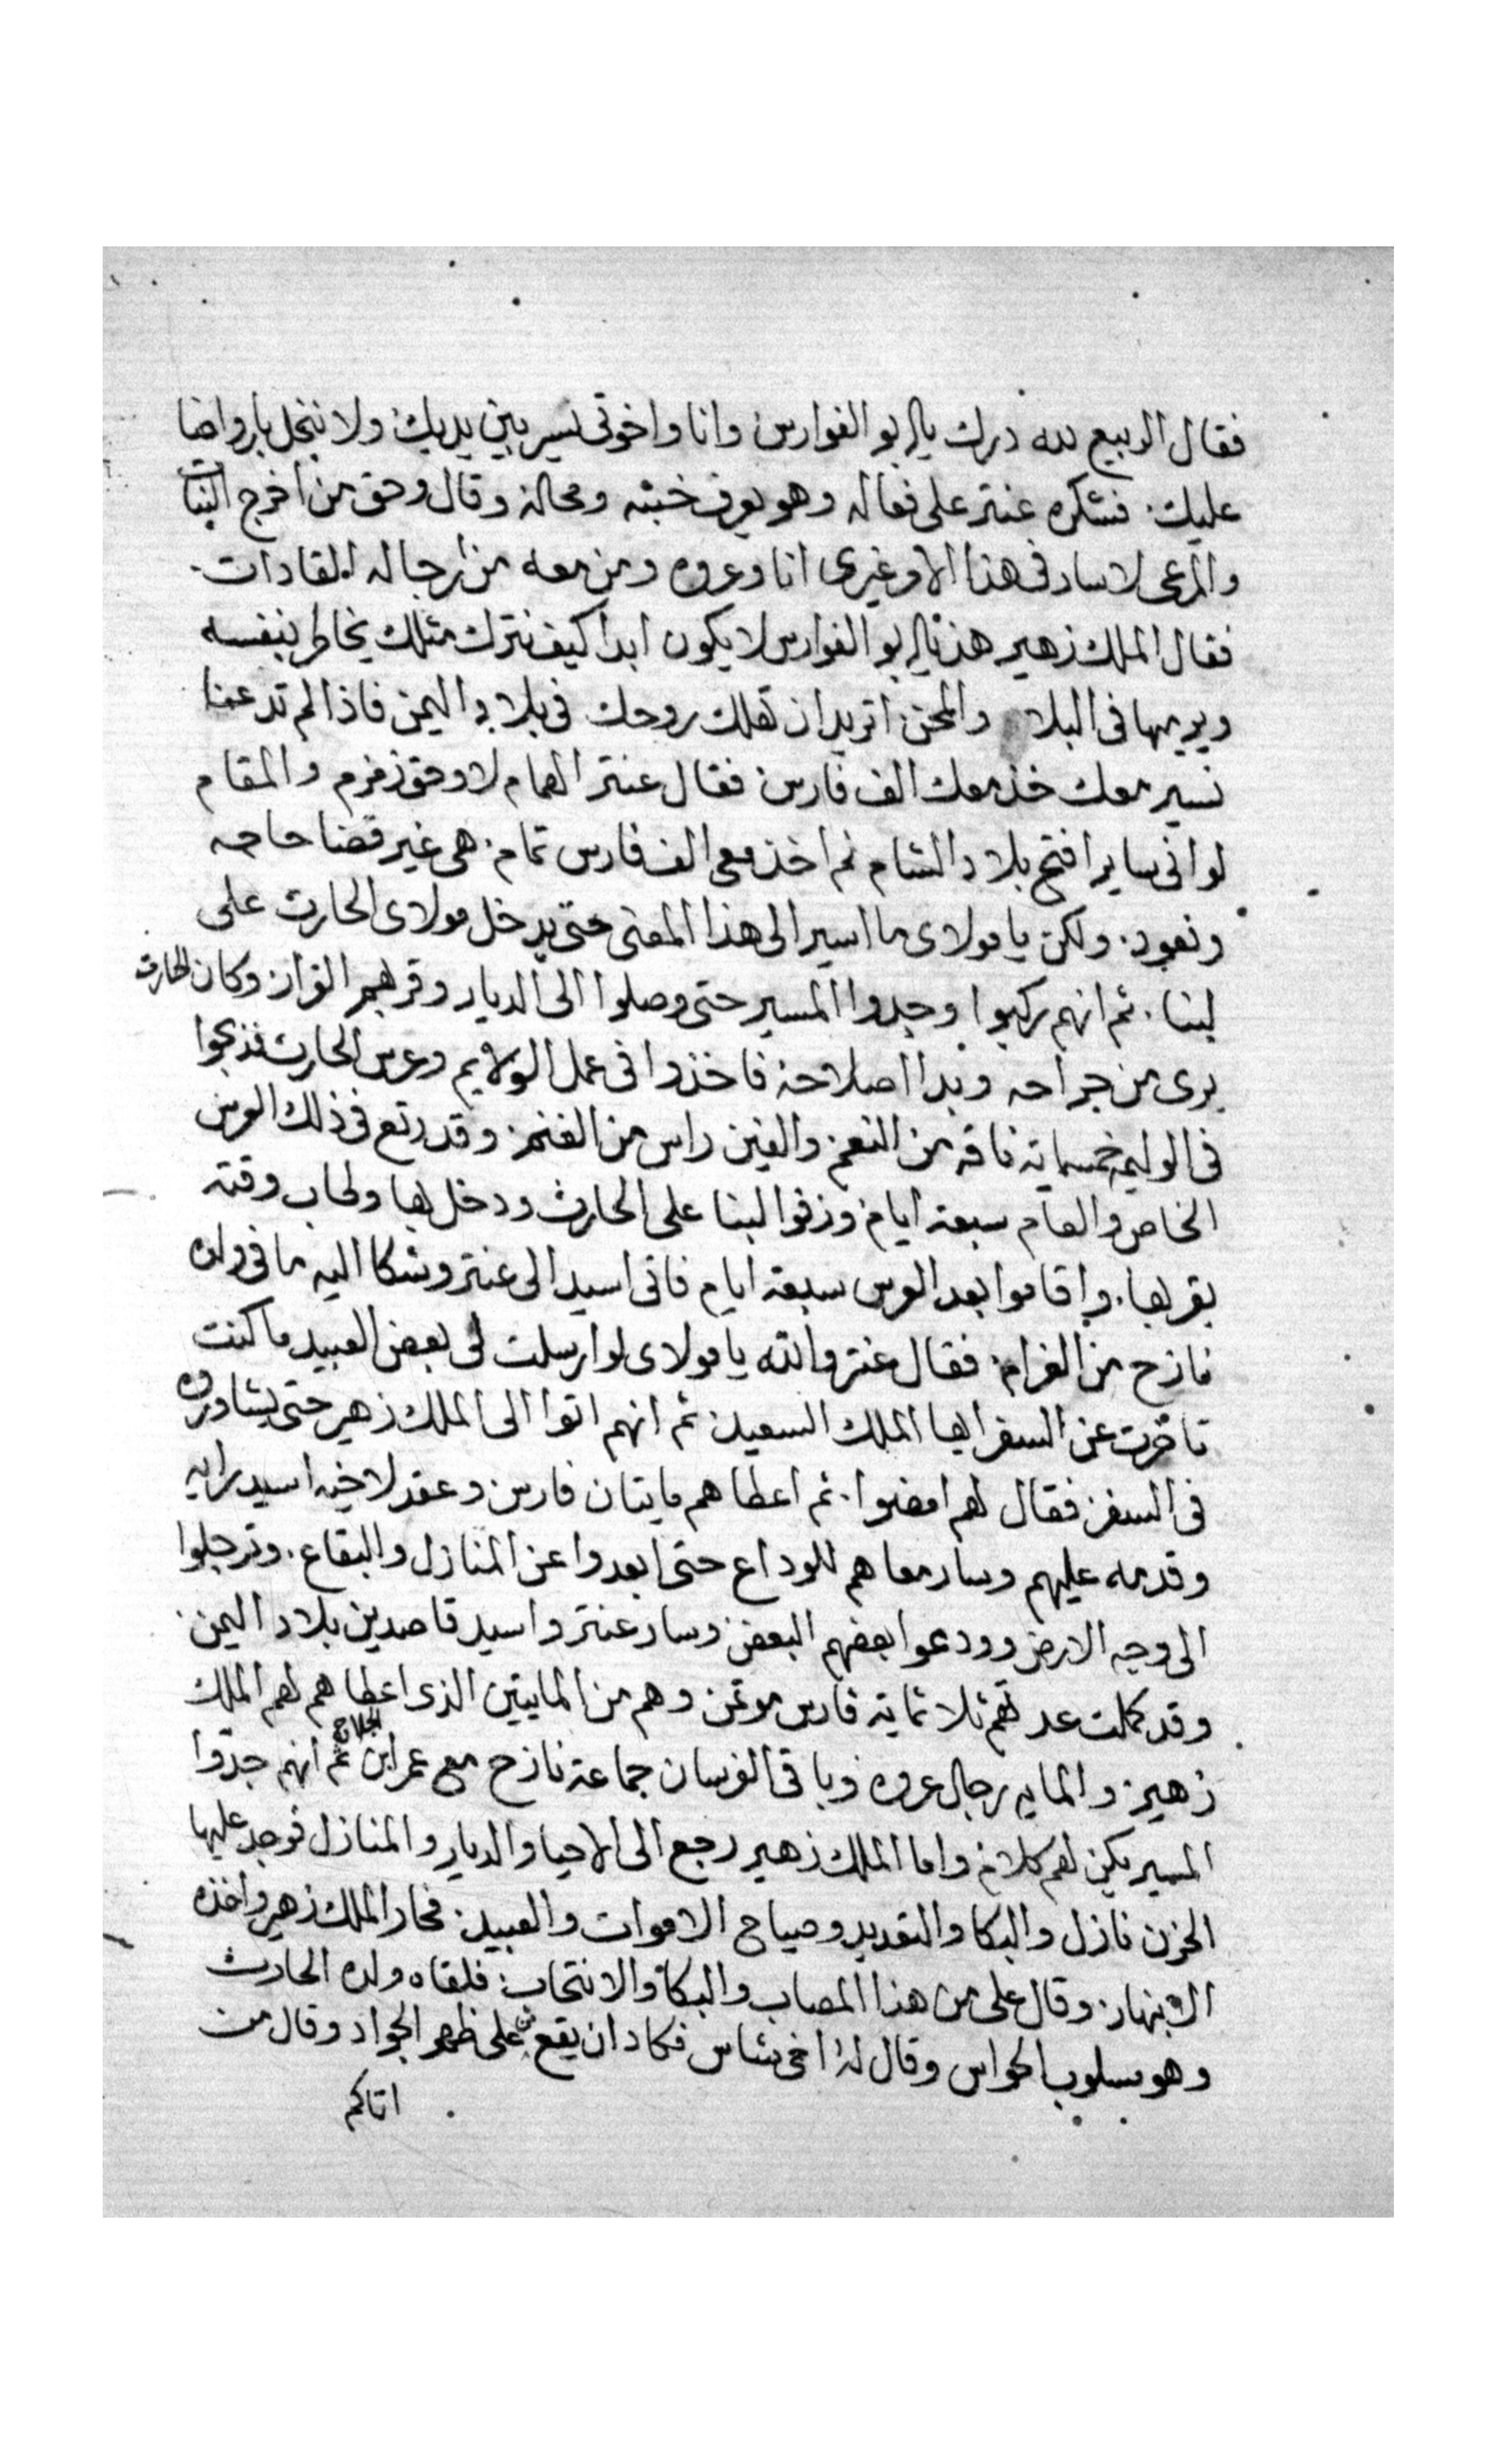 فقال الربيع لله درك يا ابو الفوارس وانا واخوتي نسير بين يديك ولا نبخل بارواحنا
عليك. فشكره عنتر على فعاله وهو يعرف خبثه ومحاله وقال وحق من اخرج النبات
والمرعى لا سار في هذا الامر غيري انا وعروه ومن معه من رجاله القادات.
فقال الملك زهير هذا يا ابو الفوارس لا يكون ابدا كيف نترك مثلك يخاطر بنفسه
ويرميها في البلا والمحن اتريد ان تهلك روحك في بلاد اليمن فاذا لم تدعنا
نسير معك خذ معك الف فارس فقال عنتر الهمام لا وحق زمزم والمقام
لو اني ساير افتح بلاد الشام لم اخذ معي الف فارس تمام. هي غير قضا حاجه
ونعود. ولكن يا مولاي ما اسير الى هذا المعنى حتى يدخل مولاي الحارث على
لبنا. ثم انهم ركبوا وجدوا المسير حتى وصلوا الى الديار وقر بهم القرار وكان الحارث
برى من جراحه وبدا اصلاحه فاخذوا في عمل الولايم وعرس الحارث فذبحوا
في الوليمه خمسماية ناقه من النعم والفين راس من الغنم. وقد رتع في ذلك العرس
الخاص والعام سبعة ايام وزفوا لبنا على الحارث ودخل بها وطاب وقته
بقربها. واقاموا بعد العرس سبعة ايام فاتى اسيد الى عنتر وشكا اليه ما في ولده
نازح من الغرام. فقال عنتر والله يا مولاي لو ارسلت لي بعض العبيد ما كنت
تاخرت عن السفر ايها الملك السعيد. ثم انهم اتوا الى الملك زهير حتى يشاوروه
في السفر فقال لهم امضوا. ثم اعطاهم مايتان فارس وعقد لاخيه اسيد رايه
وقدمه عليهم وسار معاهم للوداع حتى ابعدوا عن المنازل والبقاع. وترجلوا
الى وجه الارض وودعوا بعضهم البعض وسار عنتر واسيد قاصدين بلاد اليمن
وقد كملت عدتهم ثلاثماية فارس موتمن وهم من المايتين الذي اعطاهم لهم الملك
زهير. والمايه رجال عروه وباقي الفرسان جماعة نازح مع عمر ابن الجلاح ثم انهم جدوا
المسير يكن لهم كلام واما الملك زهير رجع الى الاحيا والديار والمنازل فوجد عليها
الحزن نازل والبكا والتعديد وصياح الاموات والعبيد. فحار الملك زهير واخذه
الانبهار. وقال على من هذا المصاب والبكا والانتحاب. فلقاه ولده الحارث
وهو مسلوب الحواس وقال له اخي شاس فكاد ان يقع من على ظهر الجواد وقال من
اتاكم